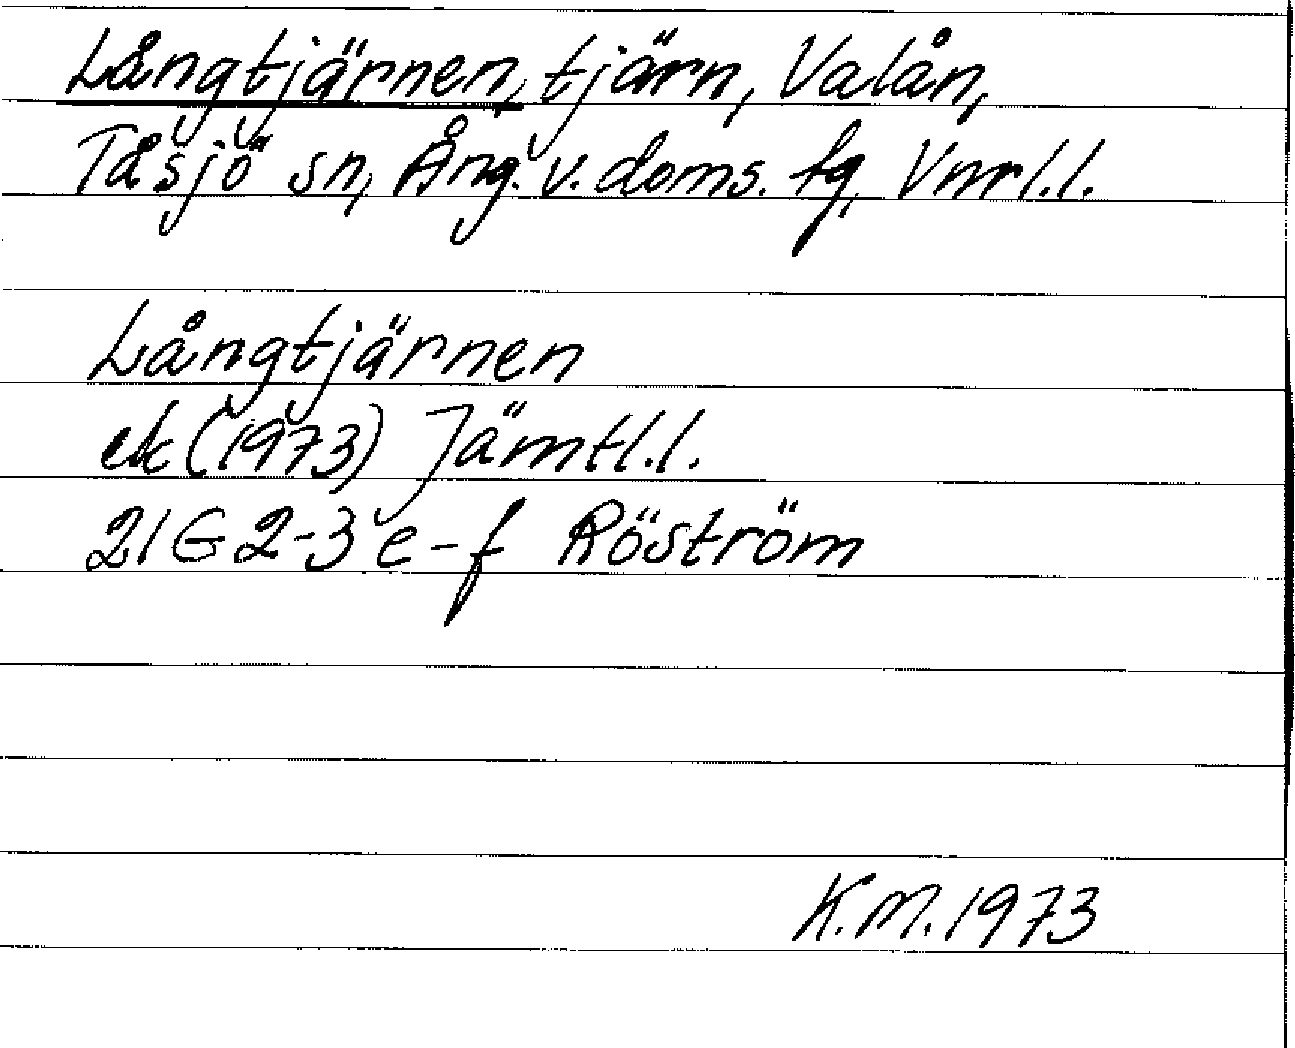 Långtjärnen, tjärn, Valån,
Tåsjö sn, Ång. v. doms. fg, Vnrl.l.
Långtjärnen
ek (1973) Jämtl.l.
21G 2-3 e-f Röström
K.M. 1973